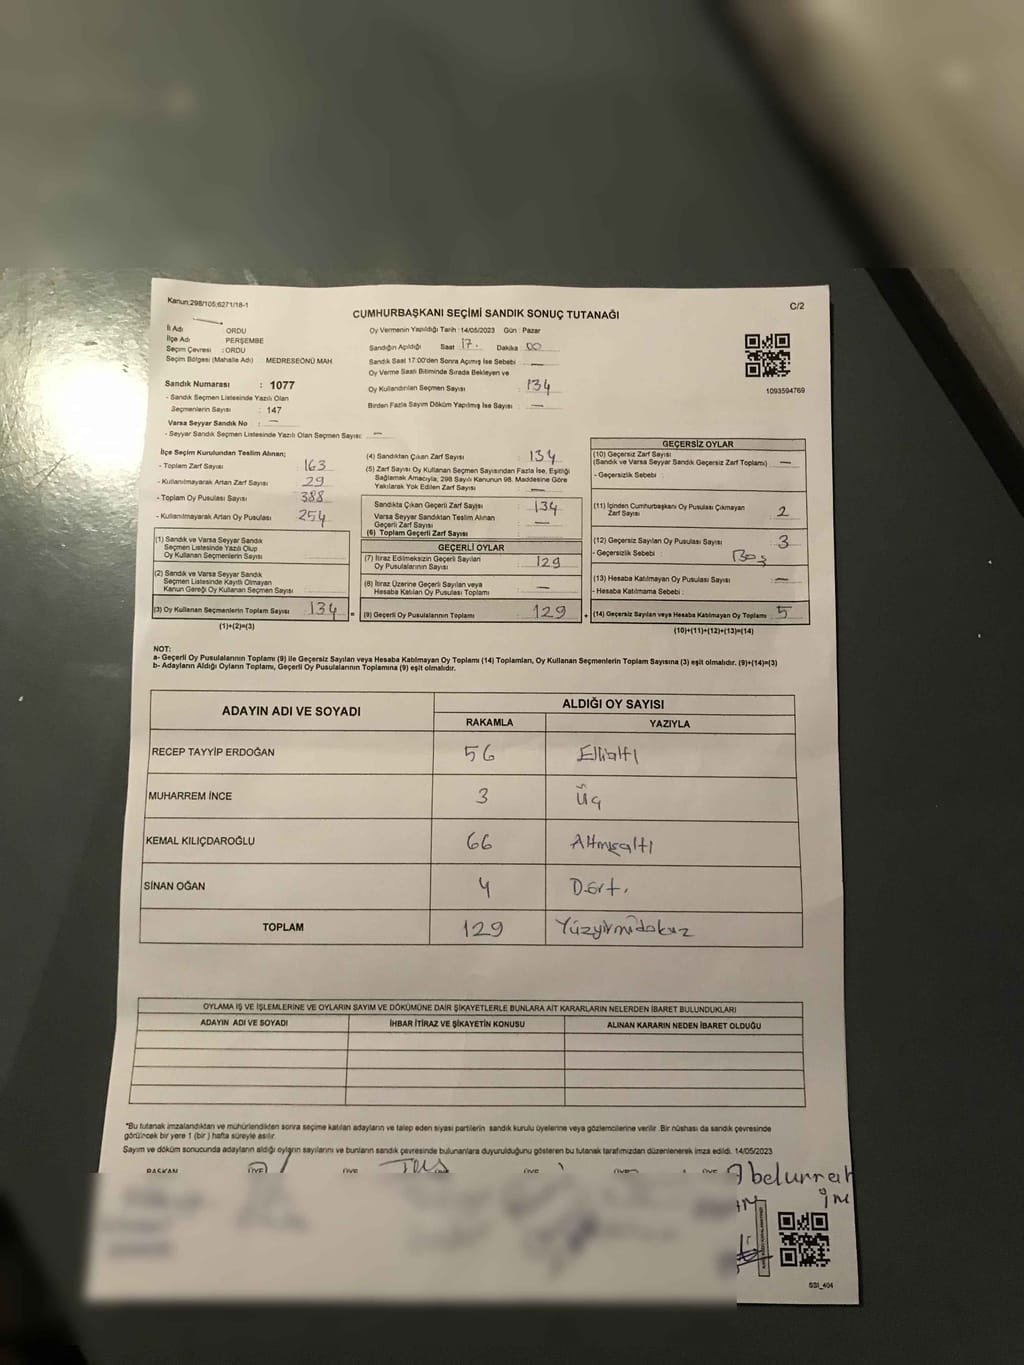 Kanun;298/105;6271/18-1
C/2
CUMHURBAŞKANI SEÇİMİ SANDIK SONUÇ TUTANAĞI
İl Adı : ORDU
İlçe Adı : PERŞEMBE
Seçim Çevresi : ORDU
Seçim Bölgesi (Mahalle Adı) : MEDRESEÖNÜ MAH.
Sandık Numarası : 1077
- Sandık Seçmen Listesinde Yazılı Olan
Seçmenlerin Sayısı : 147
Varsa Seyyar Sandık No : —
- Seyyar Sandık Seçmen Listesinde Yazılı Olan Seçmen Sayısı: —
Oy Vermenin Yapıldığı Tarih :14/05/2023 Gün : Pazar
Sandığın Açıldığı Saat 17. Dakika 00
Sandık Saat 17:00'den Sonra Açılmış İse Sebebi : —
Oy Verme Saati Bitiminde Sırada Bekleyen ve
Oy Kullandırılan Seçmen Sayısı : 134
Birden Fazla Sayım Döküm Yapılmış İse Sayısı : —
1093594769
İlçe Seçim Kurulundan Teslim Alınan;
- Toplam Zarf Sayısı : 163
- Kullanılmayarak Artan Zarf Sayısı : 29
- Toplam Oy Pusulası Sayısı : 388
- Kullanılmayarak Artan Oy Pusulası : 254
(1) Sandık ve Varsa Seyyar Sandık
Seçmen Listesinde Yazılı Olup
Oy Kullanan Seçmenlerin Sayısı
(2) Sandık ve Varsa Seyyar Sandık
Seçmen Listesinde Kayıtlı Olmayan
Kanun Gereği Oy Kullanan Seçmen Sayısı :
(3) Oy Kullanan Seçmenlerin Toplam Sayısı : 134 =
(1)+(2)=(3)
(4) Sandıktan Çıkan Zarf Sayısı : 134
(5) Zarf Sayısı Oy Kullanan Seçmen Sayısından Fazla İse, Eşitliği
Sağlamak Amacıyla, 298 Sayılı Kanunun 98. Maddesine Göre
Yakılarak Yok Edilen Zarf Sayısı : —
Sandıkta Çıkan Geçerli Zarf Sayısı : 134
Varsa Seyyar Sandıktan Teslim Alınan
Geçerli Zarf Sayısı : —
(6) Toplam Geçerli Zarf Sayısı :
GEÇERLİ OYLAR
(7) İtiraz Edilmeksizin Geçerli Sayılan
Oy Pusulalarının Sayısı : 129
(8) İtiraz Üzerine Geçerli Sayılan veya
Hesaba Katılan Oy Pusulası Toplamı : —
(9) Geçerli Oy Pusulalarının Toplamı : 129 +
GEÇERSİZ OYLAR
(10) Geçersiz Zarf Sayısı
(Sandık ve Varsa Seyyar Sandık Geçersiz Zarf Toplamı) : —
- Geçersizlik Sebebi :
(11) İçinden Cumhurbaşkanı Oy Pusulası Çıkmayan
Zarf Sayısı : 2
(12) Geçersiz Sayılan Oy Pusulası Sayısı : 3
- Geçersizlik Sebebi : Boş
(13) Hesaba Katılmayan Oy Pusulası Sayısı : —
- Hesaba Katılmama Sebebi :
(14) Geçersiz Sayılan veya Hesaba Katılmayan Oy Toplamı : 5
(10)+(11)+(12)+(13)=(14)
NOT:
a- Geçerli Oy Pusulalarının Toplamı (9) ile Geçersiz Sayılan veya Hesaba Katılmayan Oy Toplamı (14) Toplamları, Oy Kullanan Seçmenlerin Toplam Sayısına (3) eşit olmalıdır. (9)+(14)=(3)
b- Adayların Aldığı Oyların Toplamı, Geçerli Oy Pusulalarının Toplamına (9) eşit olmalıdır.
ADAYIN ADI VE SOYADI
ALDIĞI OY SAYISI
RAKAMLA YAZIYLA
RECEP TAYYİP ERDOĞAN 56 Ellialtı
MUHARREM İNCE 3 Üç
KEMAL KILIÇDAROĞLU 66 Altmışaltı
SİNAN OĞAN 4 Dört.
TOPLAM 129 Yüzyirmidokuz
OYLAMA İŞ VE İŞLEMLERİNE VE OYLARIN SAYIM VE DÖKÜMÜNE DAİR ŞİKAYETLERLE BUNLARA AİT KARARLARIN NELERDEN İBARET BULUNDUKLARI
ADAYIN ADI VE SOYADI İHBAR İTİRAZ VE ŞİKAYETİN KONUSU ALINAN KARARIN NEDEN İBARET OLDUĞU
*Bu tutanak imzalandıktan ve mühürlendikten sonra seçime katılan adayların ve talep eden siyasi partilerin sandık kurulu üyelerine veya gözlemcilerine verilir. Bir nüshası da sandık çevresinde
görülecek bir yere 1 (bir ) hafta süreyle asılır.
Sayım ve döküm sonucunda adayların aldığı oyların sayılarını ve bunların sandık çevresinde bulunanlara duyurulduğunu gösteren bu tutanak tarafımızdan düzenlenerek imza edildi. 14/05/2023
BAŞKAN ÜYE ÜYE ÜYE ÜYE ÜYE
SSI_404